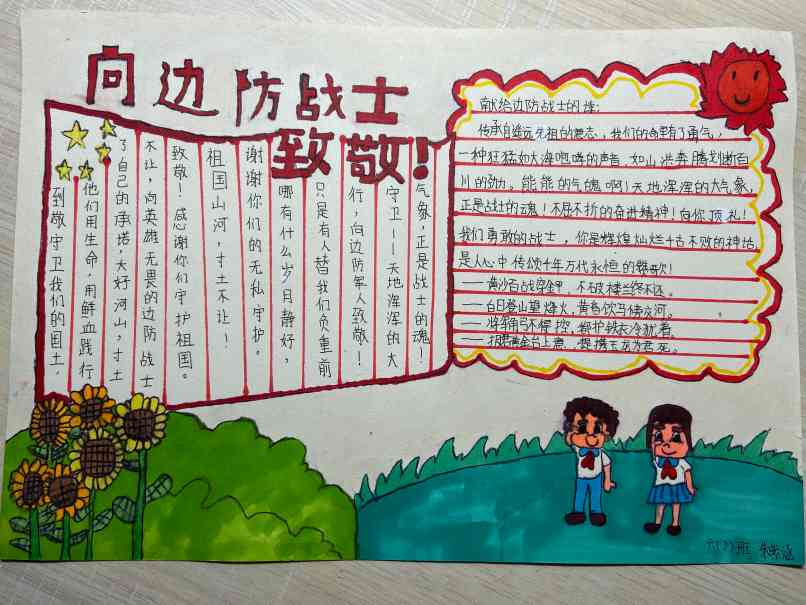 向边防战士
致敬！
到敬守卫我们的国土。
他们用生命，用鲜血践行
了自己的承诺，大好河山，寸土
不让，向英雄无畏的边防战士
致敬！感谢你们守护祖国。
祖国山河，寸土不让！
谢谢你们的无私守护。
哪有什么岁月静好，
只是有人替我们负重前
行，向边防军人致敬！
守卫——天地浑浑的大
气象，正是战士的魂！
献给边防战士的诗：
传承自遥远先祖的意志，我们的命里有了勇气，
一种狂猛如大海咆哮的声音，如山洪奔腾划断百
川的劲力。能能的气魄啊！天地浑浑的大气象，
正是战士的魂！不屈不折的奋进精神！向你顶礼！
我们勇敢的战士，你是辉煌灿烂千古不败的神话，
是人心中传颂千年万代永恒的赞歌！
——黄沙百战穿金甲，不破楼兰终不还。
——白日登山望烽火，黄昏饮马傍交河。
——将军角弓不得控，都护铁衣冷犹着。
——报君黄金台上意，提携玉龙为君死。
六(2)班 朱紫涵